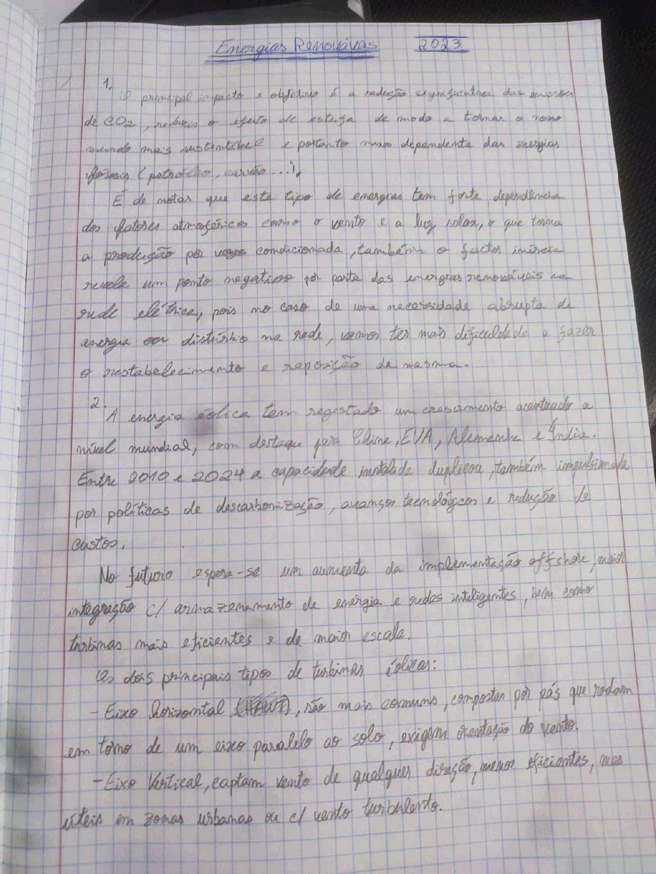 Energias Renováveis 2023
1.
O principal impacto e objetivo é a redução significativa das emissões
de CO2, reduzir o efeito de estufa de modo a tornar o nosso
mundo mais sustentável e portanto menos dependente das energias
fósseis (petróleo, carvão...).
É de notar que este tipo de energias tem forte dependência
dos fatores atmosféricos como o vento e a luz solar, o que torna
a produção por condicionada, também o factor inércia
revela um ponto negativo por parte das energias renováveis na
rede elétrica, pois no caso de uma necessidade abrupta de
energia ou distúrbio na rede, vamos ter mais dificuldade a fazer
o restabelecimento e reposição da mesma.
2.
A energia eólica tem registado um crescimento acentuado a
nível mundial, com destaque para China, EUA, Alemanha e Índia.
Entre 2010 e 2024 a capacidade instalada duplicou, também impulsionada
por políticas de descarbonização, avanços tecnológicos e redução de
custos.
No futuro espera-se um aumento da implementação offshore, maior
integração c/ armazenamento de energia e redes inteligentes, bem como
turbinas mais eficientes e de maior escala.
Os dois principais tipos de turbinas eólicas:
- Eixo horizontal, são mais comuns, compostas por pás que rodam
em torno de um eixo paralelo ao solo, exigem orientação do vento.
- Eixo Vertical, captam vento de qualquer direção, menos eficientes, mas
úteis em zonas urbanas ou c/ vento turbulento.